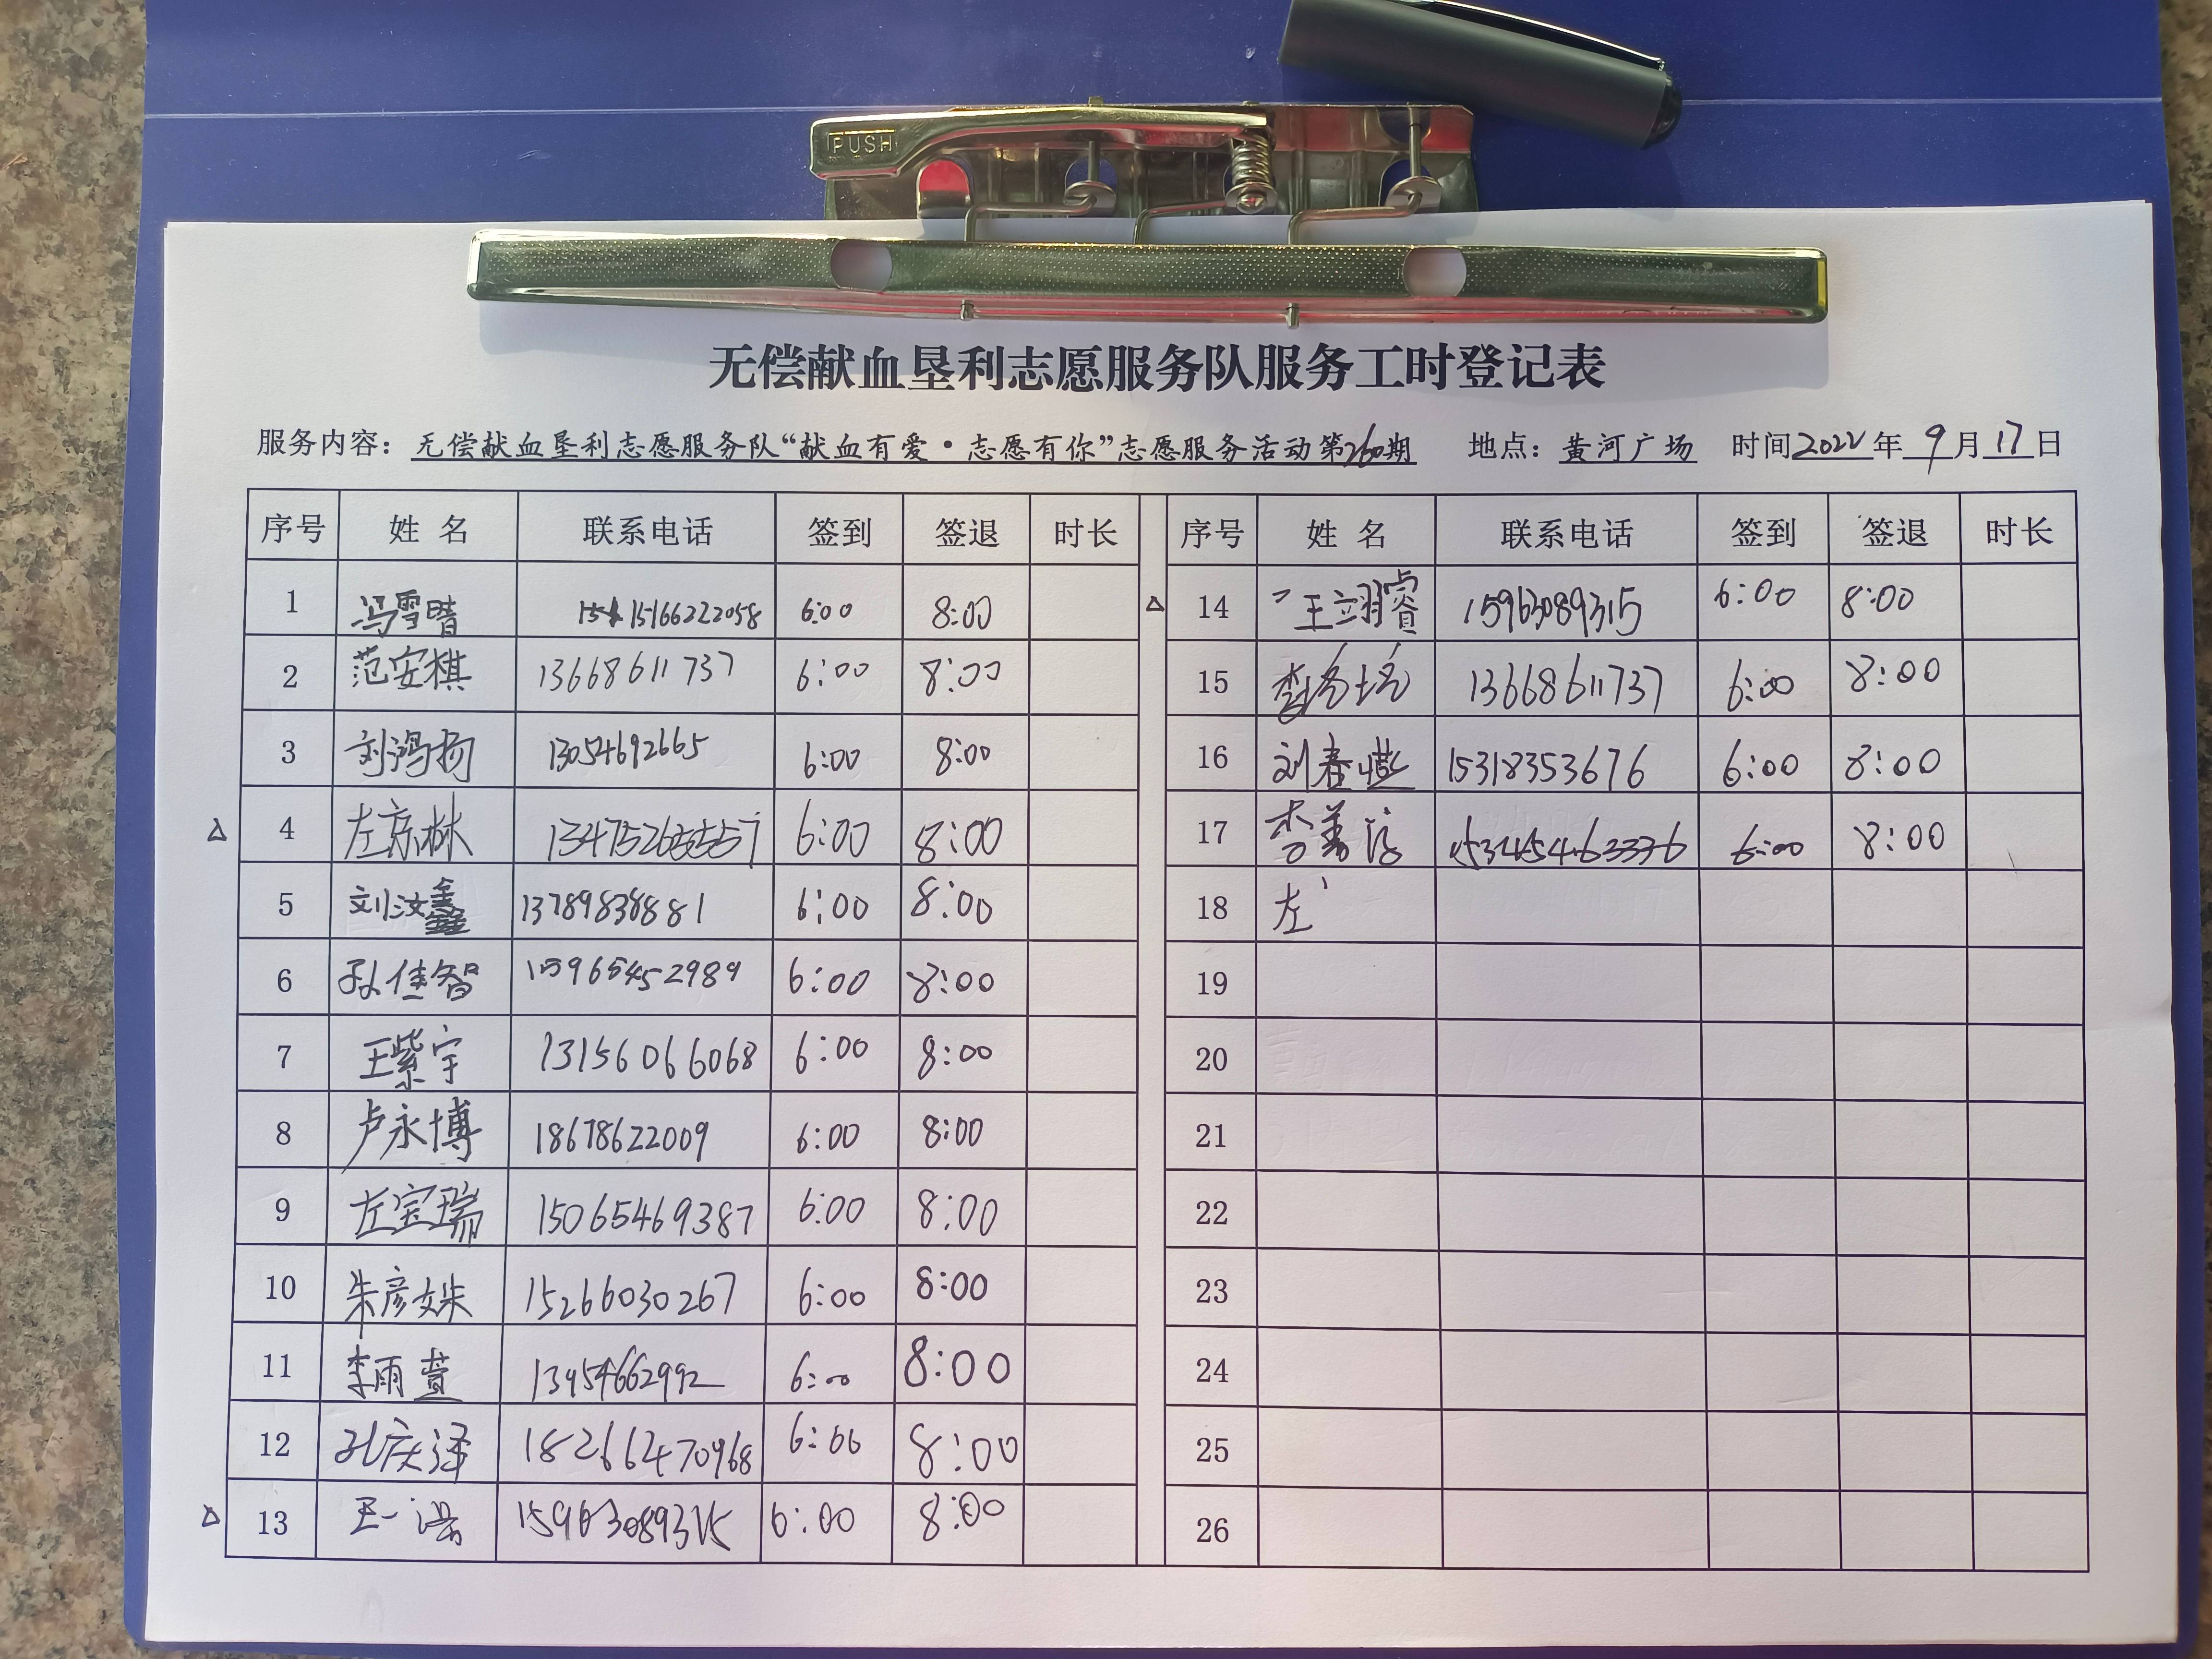 PUSH
无偿献血垦利志愿服务队服务工时登记表
服务内容：无偿献血垦利志愿服务队“献血有爱·志愿有你”志愿服务活动第260期 地点：黄河广场 时间2022年9月17日
序号 姓名 联系电话 签到 签退 时长 序号 姓名 联系电话 签到 签退 时长
1 冯雪晴 15166222058 6:00 8:00 △ 14 王翊睿 15963089315 6:00 8:00
2 范安棋 13668611737 6:00 8:00 15 李 13668611737 6:00 8:00
3 刘鸿扬 13054692665 6:00 8:00 16 刘春燕 15318353676 6:00 8:00
△ 4 左京林 6:00 8:00 17 李 6:00 8:00
5 刘汝鑫 13789838881 6:00 8:00 18 左
6 孙佳智 15965452989 6:00 8:00 19
7 王紫宇 13156066068 6:00 8:00 20
8 卢永博 18678622009 6:00 8:00 21
9 左宝瑞 15065469387 6:00 8:00 22
10 朱彦姝 15266030267 6:00 8:00 23
11 李雨萱 13954662992 6:00 8:00 24
12 孔庆泽 18266470968 6:00 8:00 25
△ 13 王一 15963089315 6:00 8:00 26